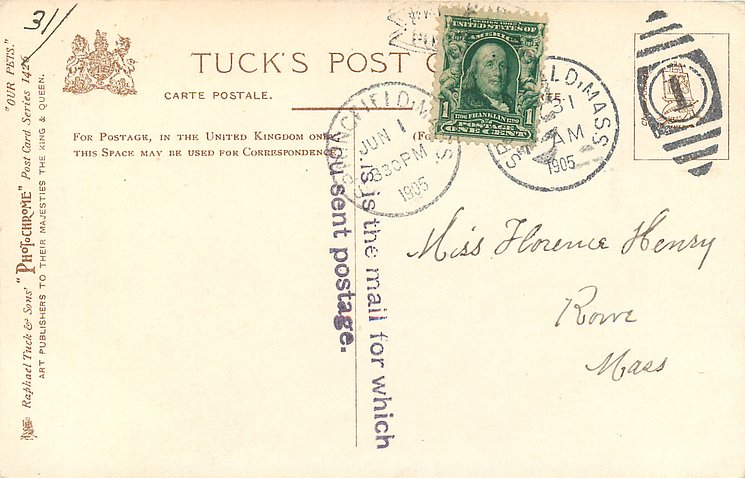 31/
TUCK'S POST C
CARTE POSTALE.
FOR POSTAGE, IN THE UNITED KINGDOM ONLY,
THIS SPACE MAY BE USED FOR CORRESPONDENCE.
(FO
SERIES 1902
UNITED STATES OF
AMERICA
1706 FRANKLIN 1790
POSTAGE
1 ONE CENT 1
FIELD, MASS
JUN 1
830 PM
1905
ELD, MASS
31
AM
1905
1
is is the mail for which
you sent postage.
Miss Florence Henry
Rowe
Mass
"OUR PETS."
Raphael Tuck & Sons' "PHOTOCHROME" Post Card Series 1426
ART PUBLISHERS TO THEIR MAJESTIES THE KING & QUEEN.